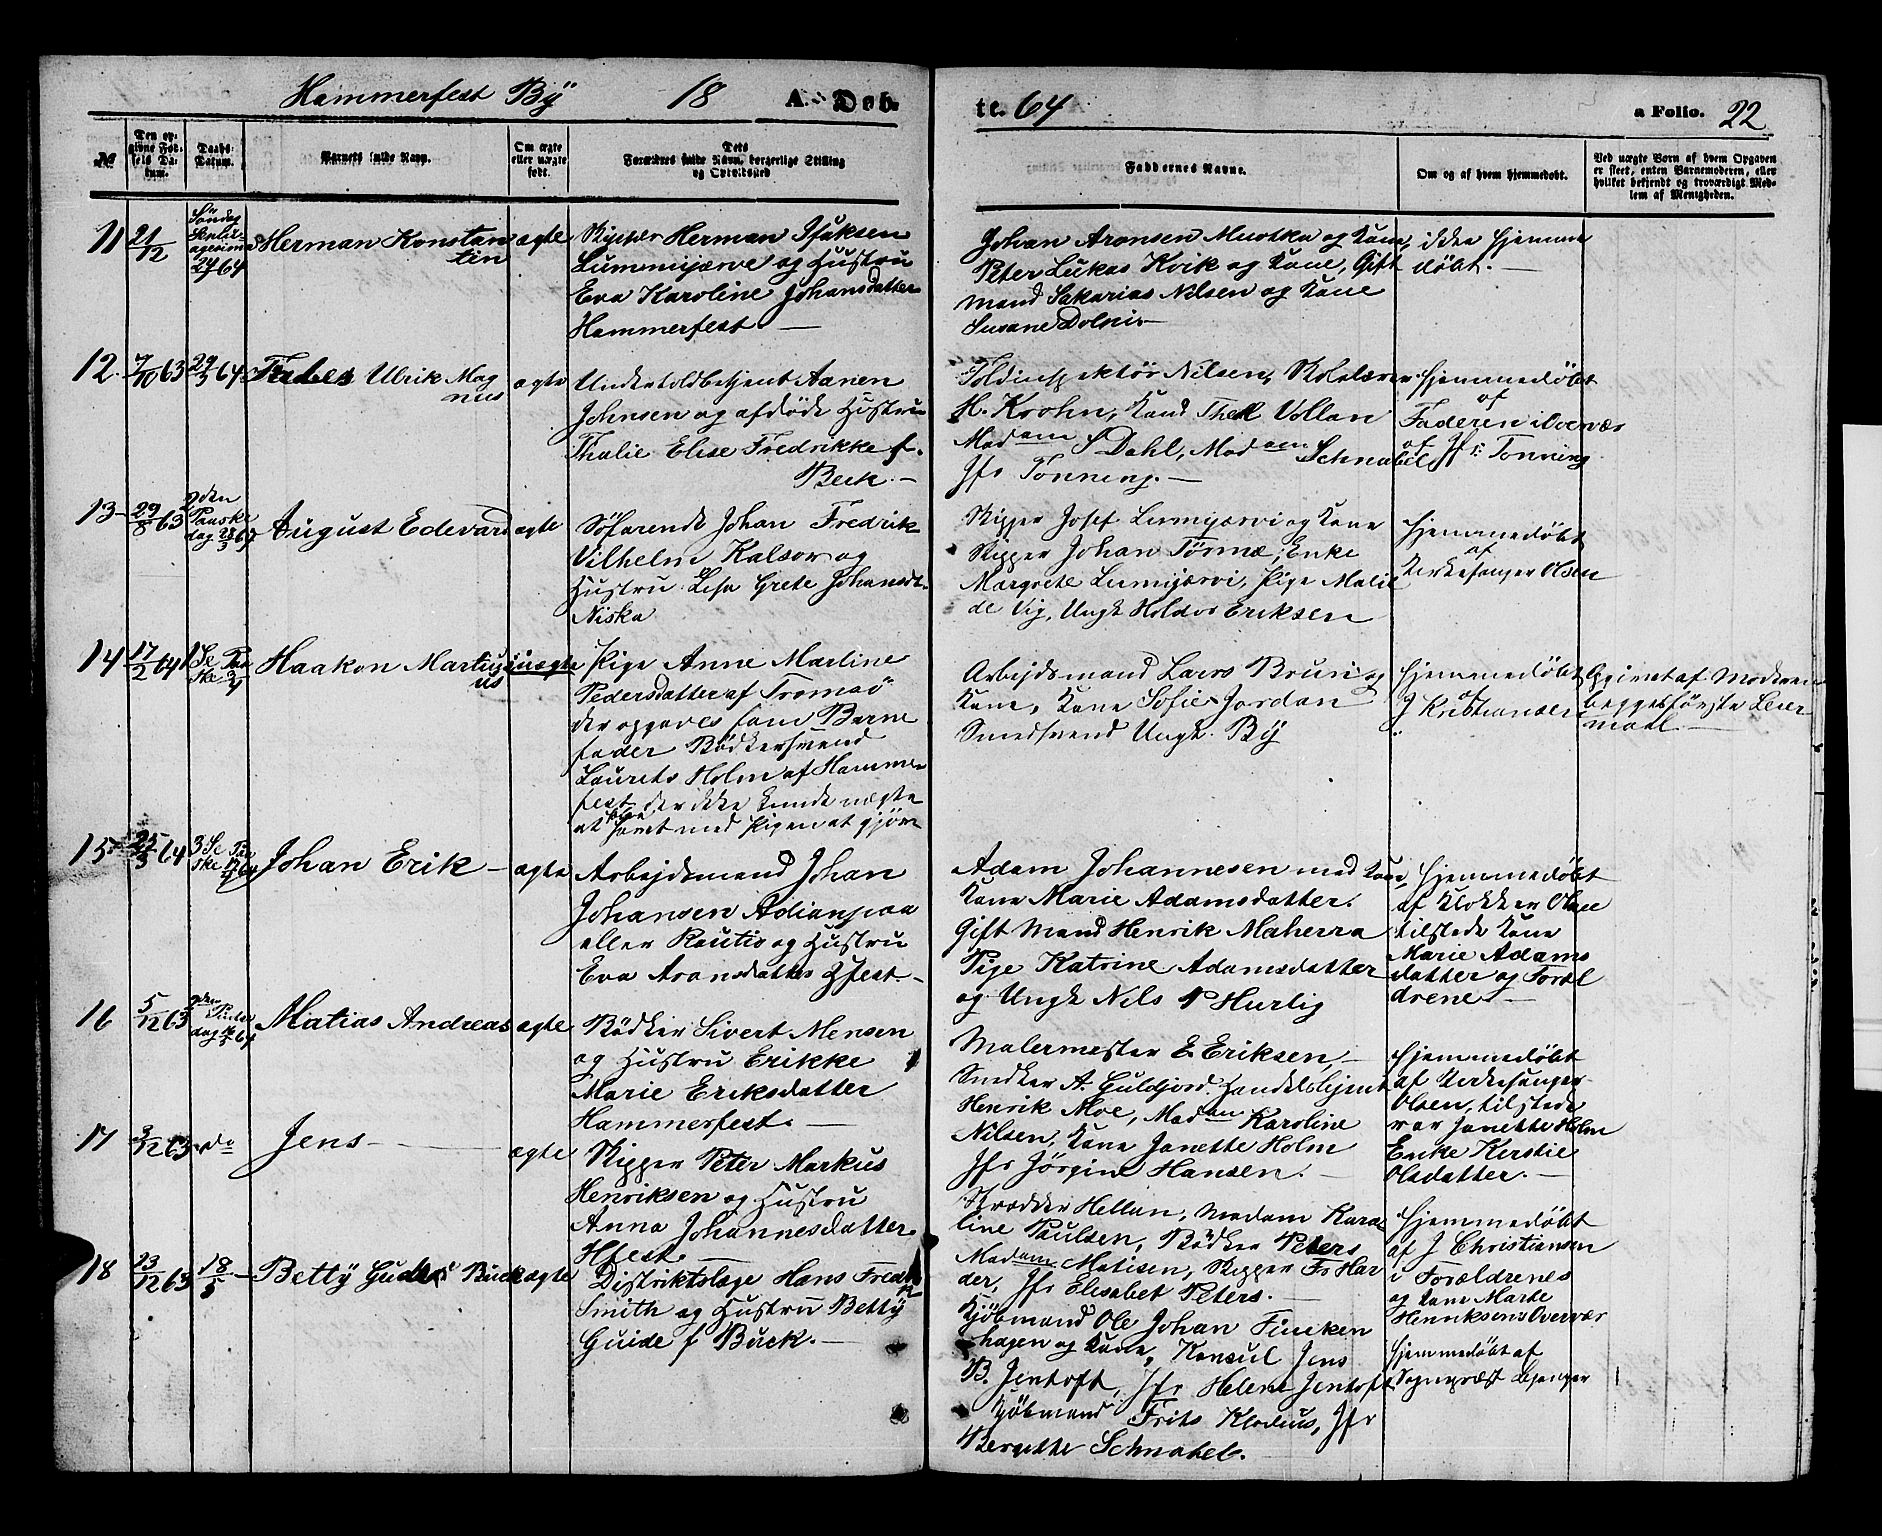 Hammerfest By 18 A. Døb- te. 64 a Folio. 22
№
Den an-
givne Fød-
sels Da-
tum.
Daabs-
Datum.
Barnets fulde Navn.
Om ægte
eller uægte
født.
Dets
Forældres fulde Navn, borgerlige Stilling
og Opholdssted
Faddernes Navne.
Om og af hvem hjemmedøbt.
Ved uægte Børn af hvem Opgaven
er skeet, enten Barnemoderen, eller
hvilket bekjendt og troværdigt Med-
lem af Menigheden.
11 21/12
Søndag
24/1 64
Herman Konstan
tin
ægte
Skipper Herman Isaksen
Lummijærve og Hustru
Eva Karoline Johansdatter
Hammerfest —
Johan Aronsen Muotka og Kone,
Peter Lukas Kvik og Kone, Gift
mand Sakarias Nilsen og Kone
Susane Dolpis
ikke hjemme
døbt. —
12. 7/10 63 24/3 64 Ulrik Mag
nus
ægte
Undertoldbetjent Aanen
Johnsen og afdøde Hustru
Thalie Elise Fredrikke f.
Beck. —
Toldinspektør Nilsen, Skolelærer
H. Krohn, Kand Theol Vollan
Madam S Dahl, Madam Schnabel
Jfr Tønning. —
hjemmedøbt
af
Faderen i Overvær
af Jfr: Tonning
13 29/8 63
2den
Paaske
dag 28/3 64
August Edevard ægte
Søfarende Johan Fredrik
Vilhelm Kalsow og
Hustru Lisa Grete Johansdt.
Niska
Skipper Josef Lumijærvi og Kone
Skipper Johan Törmæ, Enke
Margrete Lumijærvi, Pige Matil
de Vig, Ungk Holdor Eriksen
hjemmedøbt
af
Kirkesanger Olsen
14 17/2 64 1 Se Paa
ske 3/4
Haakon Martin
us
uægte
Pige Anne Marline
Pedersdatter af Tromsø
der opgaves som Barne
fader Bødkersvend
Laurets Holm af Hammer
fest der ikke kunde nægte
at have havt med Pigen at gjøre
Arbejdsmand Lars Bruun og
Kone, Kone Sofie Jordan
Smedsvend Ungk. By
hjemmedøbt
af
J Kristiansen
Opgivet af Moderen
begges første Leier
maal —
15 25/3 64 3 Se Paa
ske 17/4 64
Johan Erik — ægte
Arbejdsmand Johan
Johansen Adianpaa
eller Rautio og Hustru
Eva Aronsdatter Hfest. —
Adam Johannesen med Kone,
Kone Marie Adamsdatter.
Gift Mand Henrik Maherra
Pige Katrine Adamsdatter
og Ungk Nils P Hurtig
hjemmedøbt
af Klokker Olsen
tilstede Kone
Marie Adams
datter og Foræl
drene —
16 5/12 63
2den Pintse
dag 16/5 64
Matias Andreas ægte
Bødker Sivert Mensen
og Hustru Erikke
Marie Eriksdatter
Hammerfest. —
Malermester E Eriksen, —
Snedker A. Guldjord. Handelsbetjent
Henrik Moe, Madam Karoline
Nilsen, Kone Janette Holm
Jfr Jørgine Hansen. —
hjemmedøbt
af Kirkesanger
Olsen, tilstede
var Janette Holm
Enke Kerstie
Olsdatter. —
17 3/12 63 do Jens — ægte
Skipper Peter Markus
Henriksen og Hustru
Anna Johannesdatter
Hfest. —
Skrædder Hellan, Madam Karo
line Paulsen, Bødker Peters
Madam Matisen, Skipper Fr Har
der, Jfr Elisabet Peters. —
hjemmedøbt
af J Christiansen
i Forældrenes
og Kone Marte
Henriksens Overvær
18 23/12 63 18/5 — Betty Buck ægte
Distriktslæge Hans Fredrik
Smith og Hustru Betty
Guide f Buck. —
Kjøbmand Ole Johan Fincken
hagen og Kone, Konsul Jens
B. Jentoft, Jfr Helene Jentoft
Kjøbmand Frits Klodius, Jfr
Bergitte Schnabel.
hjemmedøbt af
Sognepræst